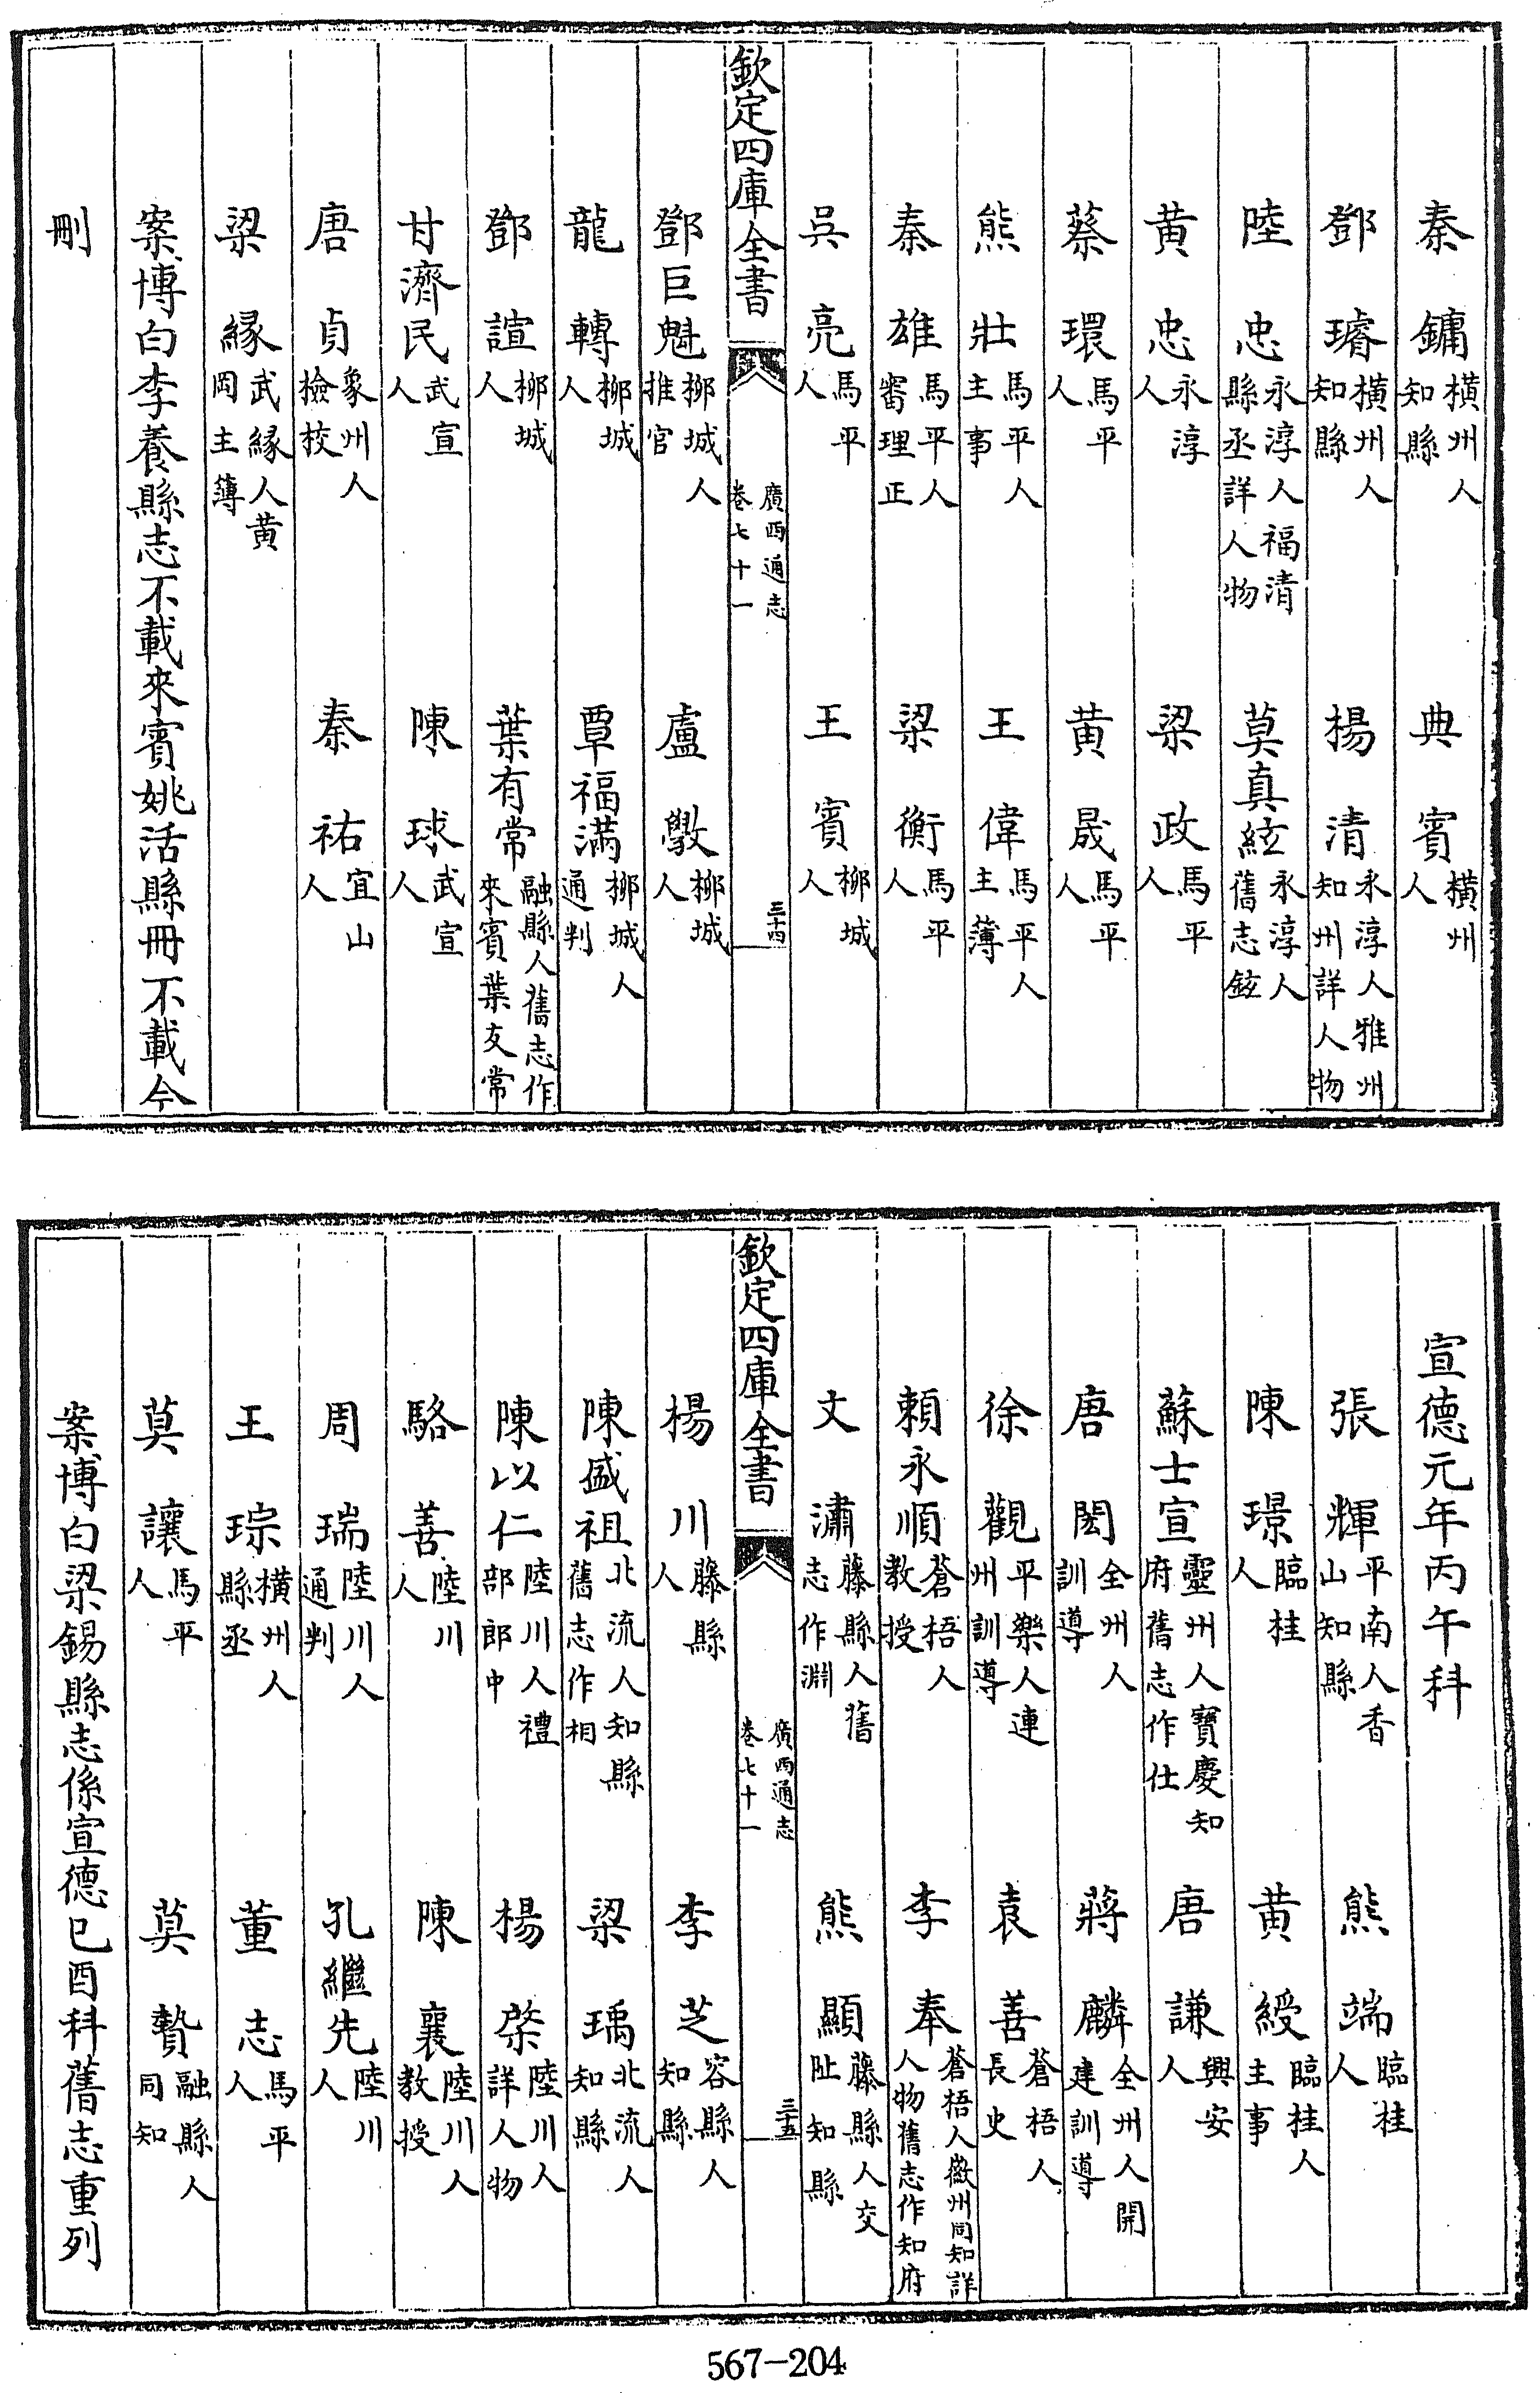 秦鏞橫州人知縣 典賓橫州人
鄧璿橫州人知縣 楊清永淳人雅州知州詳人物
陸忠永淳人福清縣丞詳人物 莫真絃永淳人舊志鉉
黃忠永淳人 梁政馬平人
蔡環馬平人 黃晟馬平人
熊壯馬平人主事 王偉馬平人主薄
秦雄馬平人審理正 梁衡馬平人
吳亮馬平人 王賓柳城人
欽定四庫全書 廣西通志卷七十一 三十四
鄧巨魁柳城人推官 盧斆柳城人
龍轉柳城人 覃福滿柳城人通判
鄧諠柳城人 葉有常融縣人舊志作來賓葉友常
甘濟民武宣人 陳球武宣人
唐貞象州人檢校 秦祐宜山人
梁緣武緣人黃岡主薄
案博白李養縣志不載來賓姚活縣冊不載今
刪
宣德元年丙午科
張輝平南人香山知縣 熊端臨桂人
陳璟臨桂人 黃綬臨桂人主事
蘇士宣靈州人寶慶知府舊志作仕 唐謙興安人
唐閎全州人訓導 蔣麟全州人開建訓導
徐觀平樂人連州訓導 袁善蒼梧人長史
賴永順蒼梧人教授 李奉蒼梧人徽州同知詳人物舊志作知府
文潚藤縣人舊志作淵 熊顯藤縣人交阯知縣
欽定四庫全書 廣西通志卷七十一 三十五
楊川藤縣人 李芝容縣人知縣
陳盛祖北流人知縣舊志作相 梁瑀北流人知縣
陳以仁陸川人禮部郎中 楊棨陸川人詳人物
駱善陸川人 陳襄陸川人教授
周瑞陸川人通判 孔繼先陸川人
王琮橫州人縣丞 董志馬平人
莫讓馬平人 莫贊融縣人同知
案博白梁錫縣志係宣德已酉科舊志重列
567-204